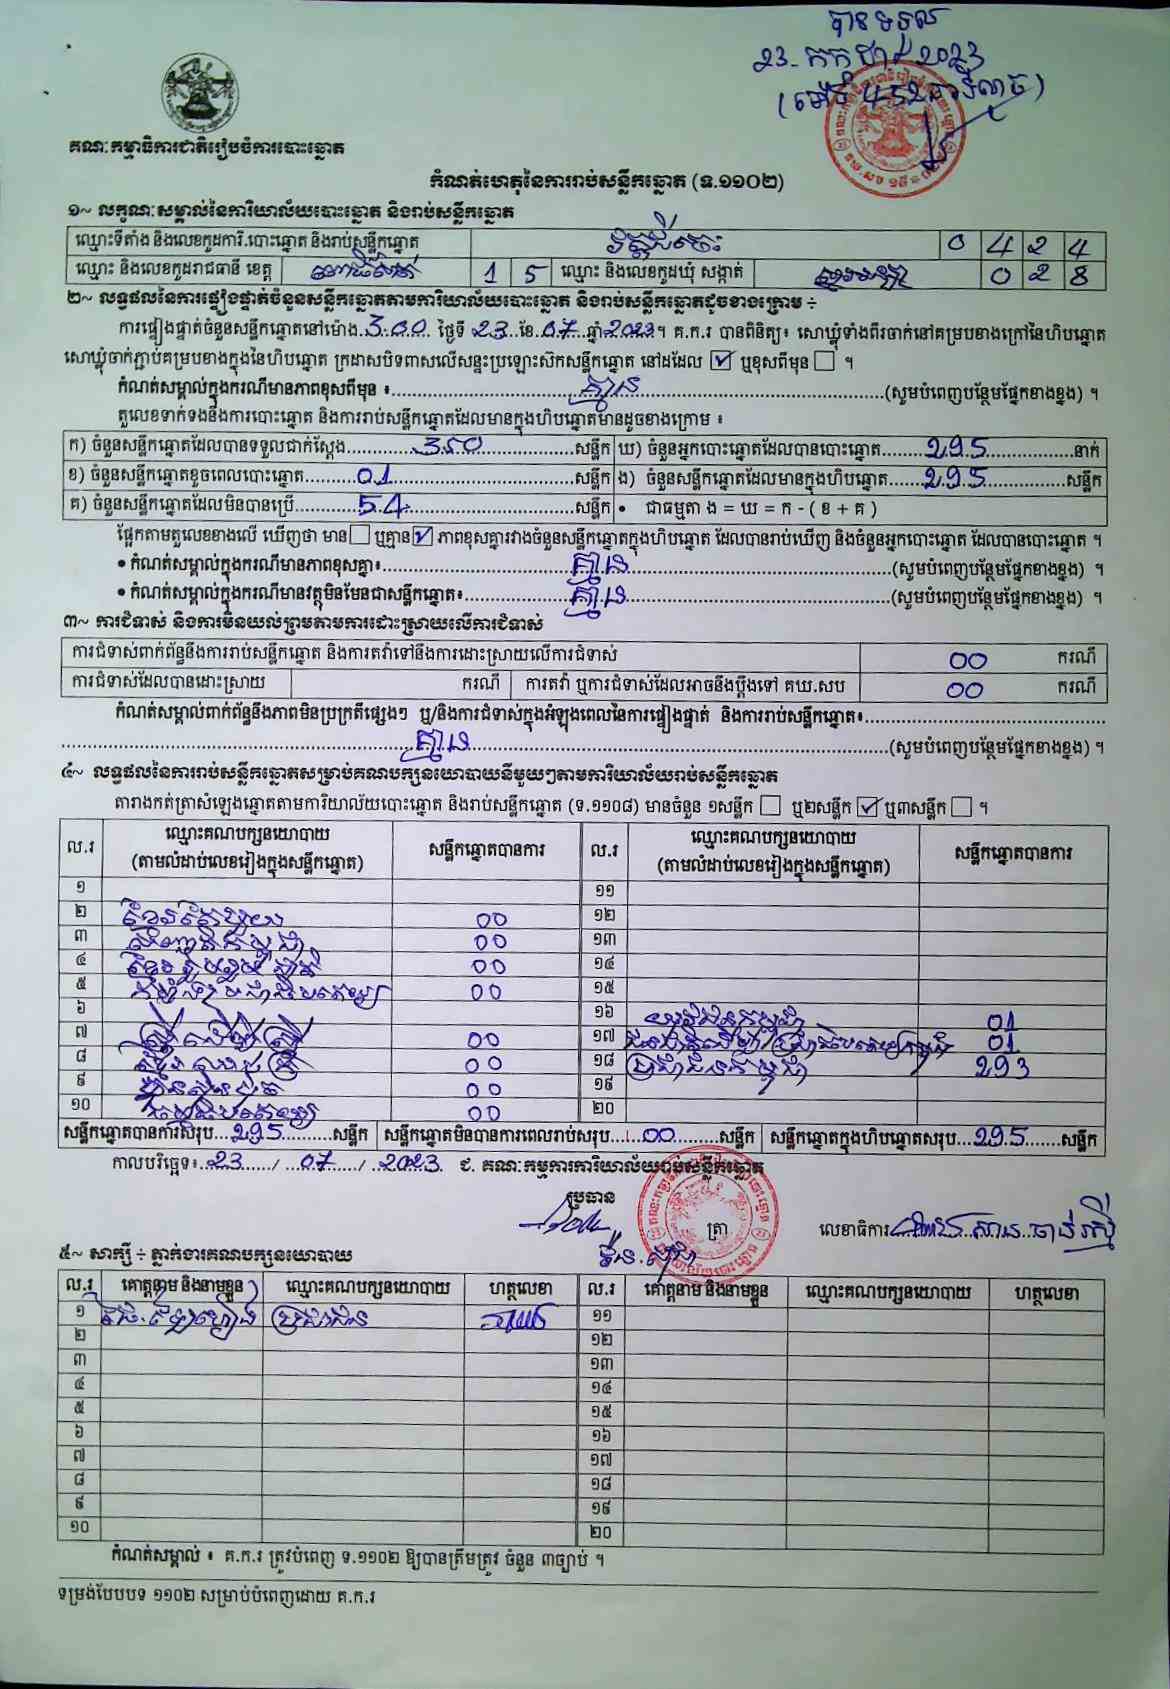 បានទទួល
23. កក្កដា 2023
គណៈកម្មាធិការជាតិរៀបចំការបោះឆ្នោត
កំណត់ហេតុនៃការរាប់សន្លឹកឆ្នោត (ទ.១១០២)
១~ លក្ខណៈសម្គាល់នៃការិយាល័យបោះឆ្នោត និងរាប់សន្លឹកឆ្នោត
ឈ្មោះទីតាំង និងលេខកូដការិ.បោះឆ្នោត និងរាប់សន្លឹកឆ្នោត 0 4 2 4
ឈ្មោះ និងលេខកូដរាជធានី ខេត្ត ពោធិ៍សាត់ 1 5 ឈ្មោះ និងលេខកូដឃុំ សង្កាត់ 0 2 8
២~ លទ្ធផលនៃការផ្ទៀងផ្ទាត់ចំនួនសន្លឹកឆ្នោតតាមការិយាល័យបោះឆ្នោត និងរាប់សន្លឹកឆ្នោតដូចខាងក្រោម ÷
ការផ្ទៀងផ្ទាត់ចំនួនសន្លឹកឆ្នោតនៅម៉ោង 3:00 ថ្ងៃទី 23 ខែ 07 ឆ្នាំ 2023 ។ គ.ក.រ បានពិនិត្យ៖ សោឃ្លុំទាំងពីរចាក់នៅគម្របខាងក្រៅនៃហិបឆ្នោត
សោឃ្លុំចាក់ភ្ជាប់គម្របខាងក្នុងនៃហិបឆ្នោត ក្រដាសបិទពាសលើសន្ទះប្រឡោះស៊កសន្លឹកឆ្នោត នៅដដែល ☑ ឬខុសពីមុន ☐ ។
កំណត់សម្គាល់ក្នុងករណីមានភាពខុសពីមុន ៖ គ្មាន (សូមបំពេញបន្ថែមផ្នែកខាងខ្នង) ។
តួលេខទាក់ទងនឹងការបោះឆ្នោត និងការរាប់សន្លឹកឆ្នោតដែលមានក្នុងហិបឆ្នោតមានដូចខាងក្រោម ៖
ក) ចំនួនសន្លឹកឆ្នោតដែលបានទទួលជាក់ស្ដែង 350 សន្លឹក ឃ) ចំនួនអ្នកបោះឆ្នោតដែលបានបោះឆ្នោត 295 នាក់
ខ) ចំនួនសន្លឹកឆ្នោតខូចពេលបោះឆ្នោត 01 សន្លឹក ង) ចំនួនសន្លឹកឆ្នោតដែលមានក្នុងហិបឆ្នោត 295 សន្លឹក
គ) ចំនួនសន្លឹកឆ្នោតដែលមិនបានប្រើ 54 សន្លឹក • ជាធម្មតា ង = ឃ = ក - ( ខ + គ )
ផ្អែកតាមតួលេខខាងលើ ឃើញថា មាន ☐ ឬគ្មាន ☑ ភាពខុសគ្នារវាងចំនួនសន្លឹកឆ្នោតក្នុងហិបឆ្នោត ដែលបានរាប់ឃើញ និងចំនួនអ្នកបោះឆ្នោត ដែលបានបោះឆ្នោត ។
• កំណត់សម្គាល់ក្នុងករណីមានភាពខុសគ្នា៖ គ្មាន (សូមបំពេញបន្ថែមផ្នែកខាងខ្នង) ។
• កំណត់សម្គាល់ក្នុងករណីមានវត្ថុមិនមែនជាសន្លឹកឆ្នោត៖ គ្មាន (សូមបំពេញបន្ថែមផ្នែកខាងខ្នង) ។
៣~ ការជំទាស់ និងការមិនយល់ព្រមតាមការដោះស្រាយលើការជំទាស់
ការជំទាស់ពាក់ព័ន្ធនឹងការរាប់សន្លឹកឆ្នោត និងការតវ៉ាទៅនឹងការដោះស្រាយលើការជំទាស់ 00 ករណី
ការជំទាស់ដែលបានដោះស្រាយ ករណី ការតវ៉ា ឬការជំទាស់ដែលអាចនឹងប្ដឹងទៅ គឃ.សប 00 ករណី
កំណត់សម្គាល់ពាក់ព័ន្ធនឹងភាពមិនប្រក្រតីផ្សេងៗ ឬ/និងការជំទាស់ក្នុងអំឡុងពេលនៃការផ្ទៀងផ្ទាត់ និងការរាប់សន្លឹកឆ្នោត៖
គ្មាន (សូមបំពេញបន្ថែមផ្នែកខាងខ្នង) ។
៤~ លទ្ធផលនៃការរាប់សន្លឹកឆ្នោតសម្រាប់គណបក្សនយោបាយនីមួយៗតាមការិយាល័យរាប់សន្លឹកឆ្នោត
តារាងកត់ត្រាសំឡេងឆ្នោតតាមការិយាល័យបោះឆ្នោត និងរាប់សន្លឹកឆ្នោត (ទ.១១០៨) មានចំនួន ១សន្លឹក ☐ ឬ២សន្លឹក ☑ ឬ៣សន្លឹក ☐ ។
ល.រ ឈ្មោះគណបក្សនយោបាយ (តាមលំដាប់លេខរៀងក្នុងសន្លឹកឆ្នោត) សន្លឹកឆ្នោតបានការ ល.រ ឈ្មោះគណបក្សនយោបាយ (តាមលំដាប់លេខរៀងក្នុងសន្លឹកឆ្នោត) សន្លឹកឆ្នោតបានការ
១ ១១
២ ខ្មែរតែមួយ 00 ១២
៣ 00 ១៣
៤ ខ្មែររួបរួមជាតិ 00 ១៤
៥ 00 ១៥
៦ ១៦ 01
៧ ស្ត្រីដើម្បីស្ត្រី 00 ១៧ 01
៨ 00 ១៨ ប្រជាជនកម្ពុជា 293
៩ 00 ១៩
១០ 00 ២០
សន្លឹកឆ្នោតបានការសរុប 295 សន្លឹក សន្លឹកឆ្នោតមិនបានការពេលរាប់សរុប 00 សន្លឹក សន្លឹកឆ្នោតក្នុងហិបឆ្នោតសរុប 295 សន្លឹក
កាលបរិច្ឆេទ៖ 23 / 07 / 2023 ជ. គណៈកម្មការការិយាល័យរាប់សន្លឹកឆ្នោត
ប្រធាន
ត្រា លេខាធិការ
៥~ សាក្សី ÷ ភ្នាក់ងារគណបក្សនយោបាយ
ល.រ គោត្តនាម និងនាមខ្លួន ឈ្មោះគណបក្សនយោបាយ ហត្ថលេខា ល.រ គោត្តនាម និងនាមខ្លួន ឈ្មោះគណបក្សនយោបាយ ហត្ថលេខា
១ ប្រជាជន ១១
២ ១២
៣ ១៣
៤ ១៤
៥ ១៥
៦ ១៦
៧ ១៧
៨ ១៨
៩ ១៩
១០ ២០
កំណត់សម្គាល់ ៖ គ.ក.រ ត្រូវបំពេញ ទ.១១០២ ឱ្យបានត្រឹមត្រូវ ចំនួន ៣ច្បាប់ ។
ទម្រង់បែបបទ ១១០២ សម្រាប់បំពេញដោយ គ.ក.រ